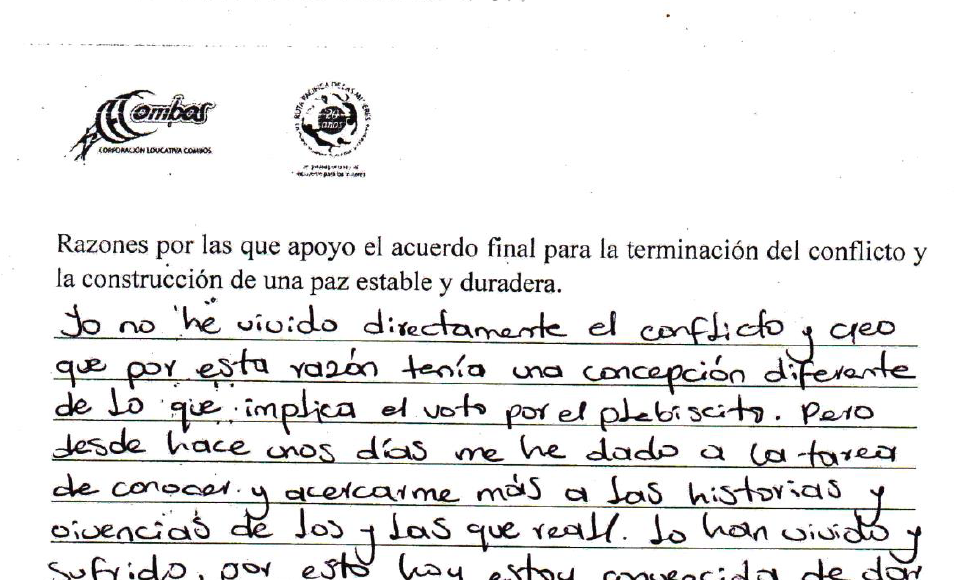 Combos
CORPORACIÓN EDUCATIVA COMBOS
RUTA PACÍFICA DE LAS MUJERES
20 años
Razones por las que apoyo el acuerdo final para la terminación del conflicto y
la construcción de una paz estable y duradera.
Yo no he vivido directamente el conflicto y creo
que por esta razón tenía una concepción diferente
de lo que implica el voto por el plebiscito. Pero
desde hace unos días me he dado a la tarea
de conocer y acercarme más a las historias y
vivencias de los y las que realf. lo han vivido y
sufrido, por esto hoy estoy convencida de dar